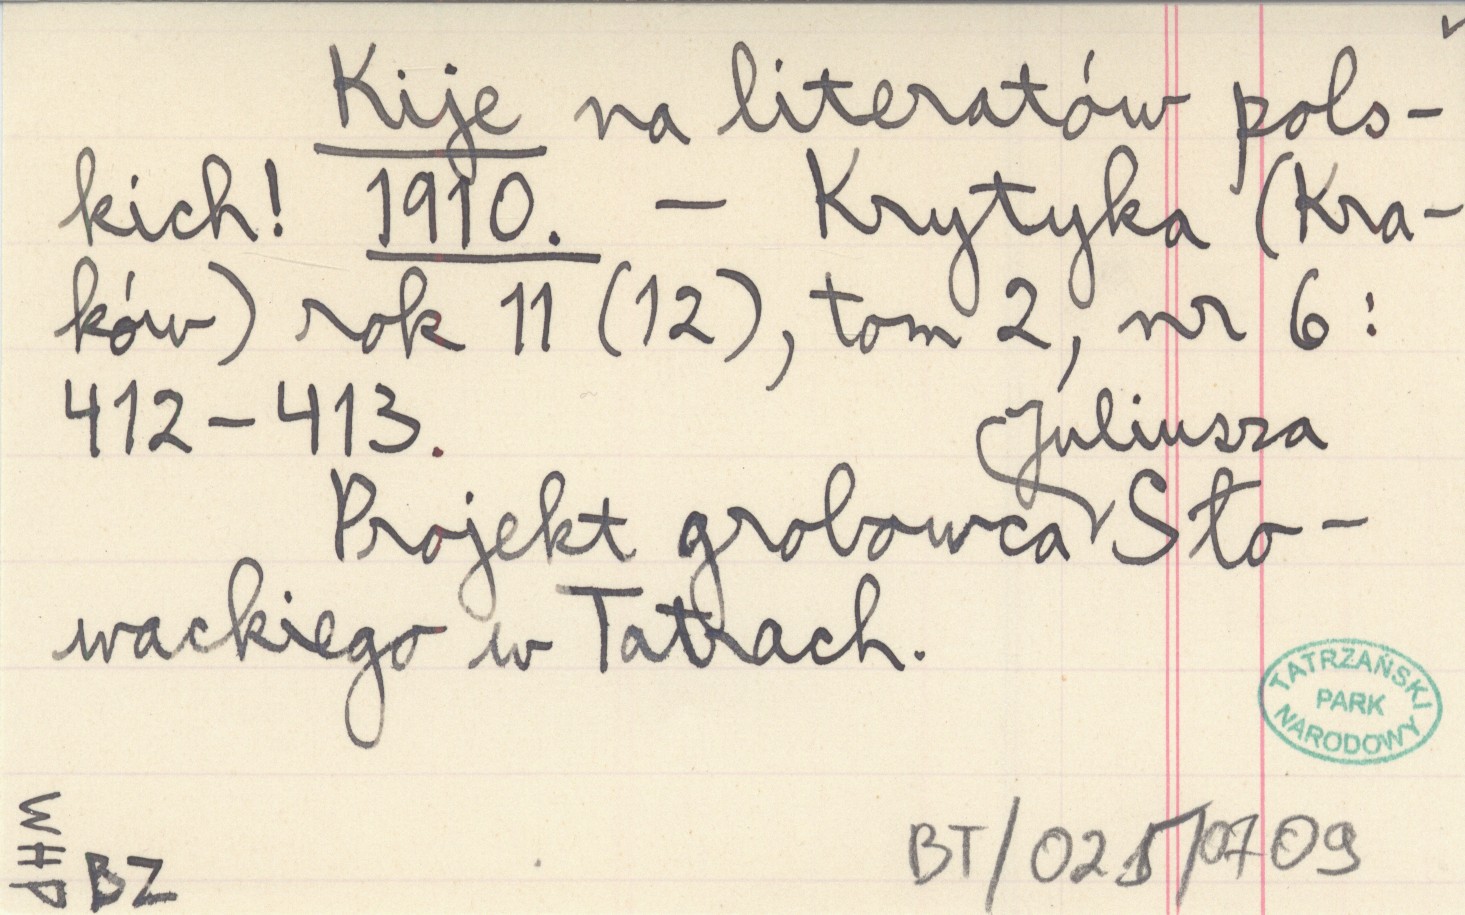 Kije na literatów pols-
kich! 1910. — Krytyka (Kra-
ków) rok 11 (12), tom 2, nr 6:
412-413.
Juliusza
Projekt grobowca Sło-
wackiego w Tatrach.
TATRZAŃSKI
PARK
NARODOWY
WHP
BZ
BT/021/0709